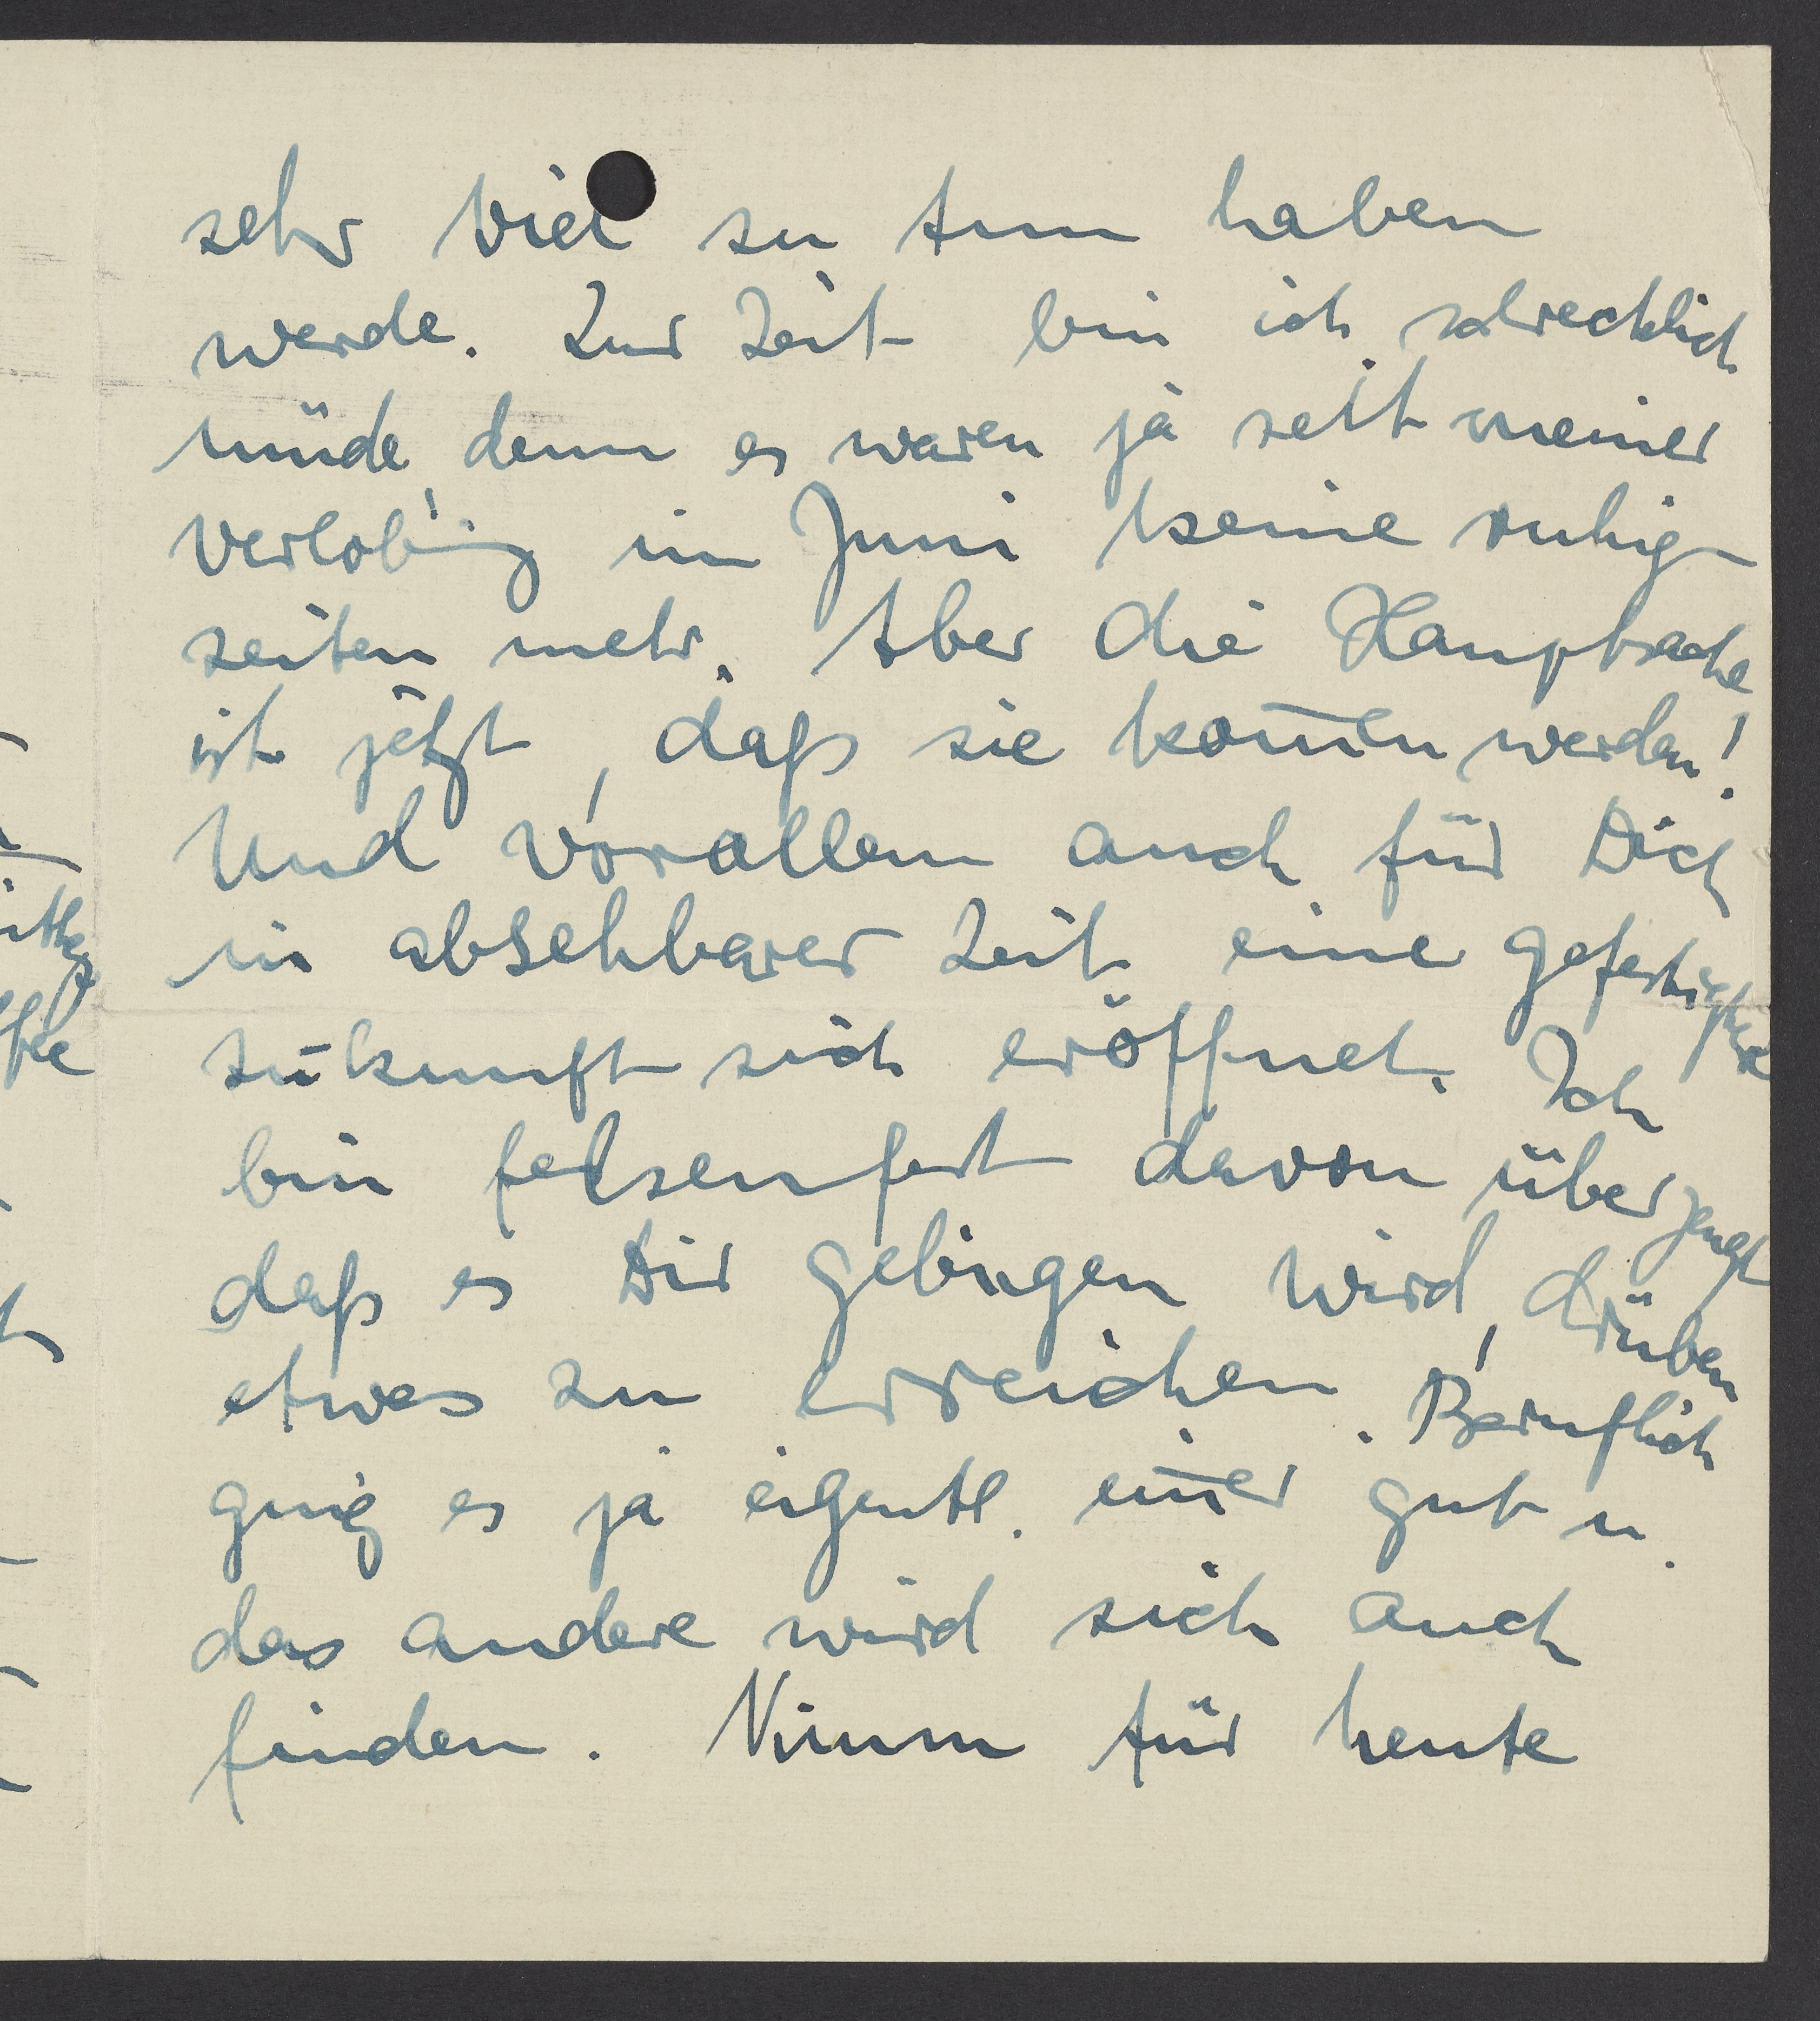 sehr viel zu tun haben
werde. Zur Zeit bin ich schrecklich
müde, denn es waren ja seit meiner
Verlobung im Juni keine ruhig
zeiten mehr. Aber die Hauptsache
ist jetzt, daß sie kom̅en werden!
Und vorallem auch für Dich
in absehbarer Zeit eine gefestigtere
Zukunft sich eröffnet. Ich
bin felsenfest davon überzeugt
daß es Dir gelingen wird, drüben
etwas zu erreichen. Beruflich
ging es ja eigentl. im̅er gut u.
das andere wird sich auch
finden. Nimm für heute